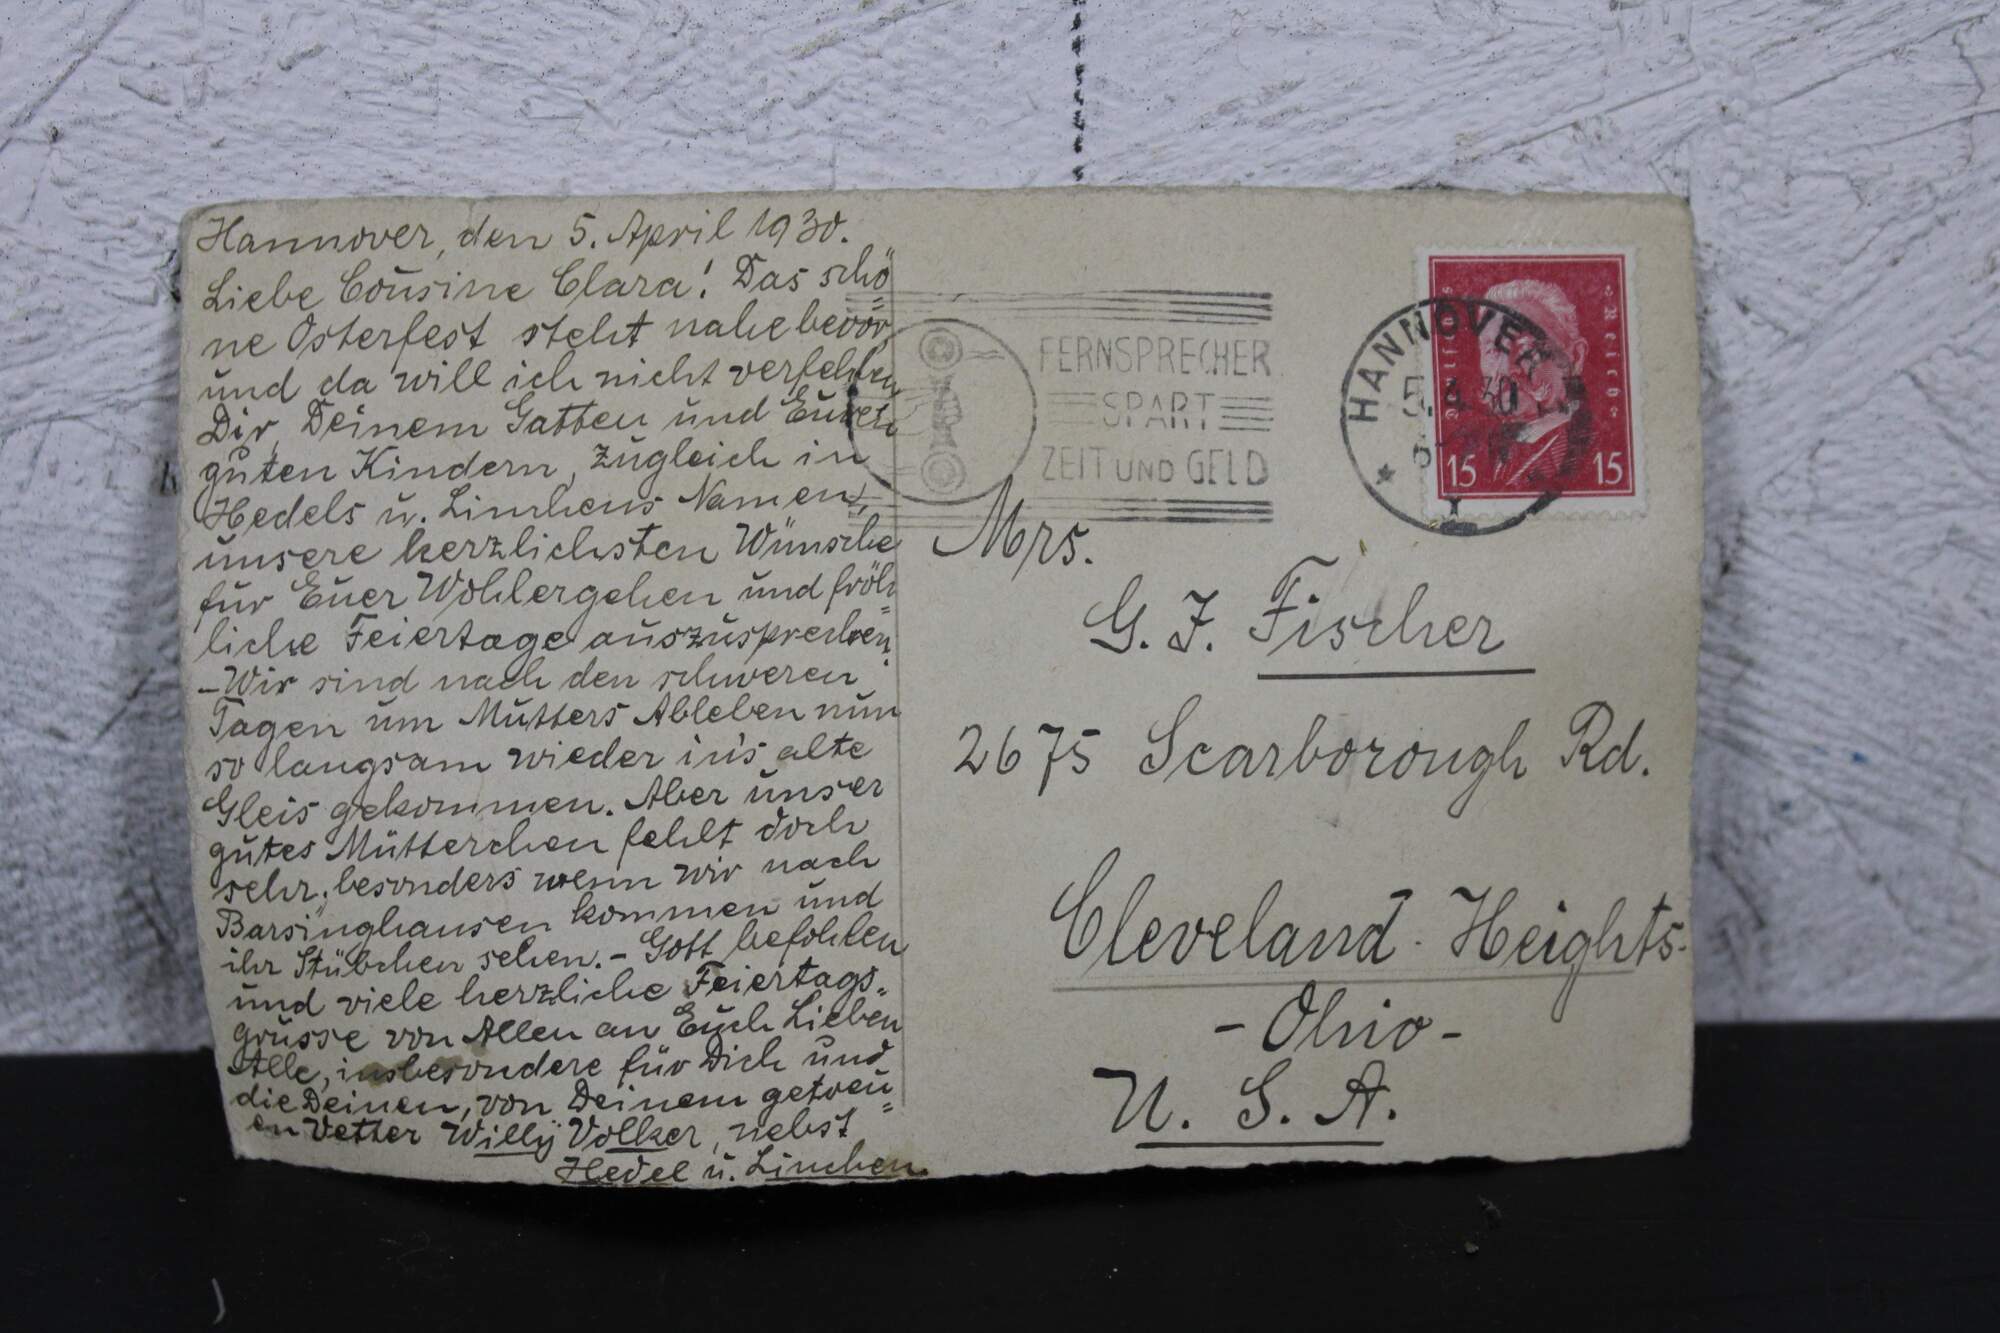 Hannover, den 5. April 1930.
Liebe Cousine Clara! Das schö
ne Osterfest steht nahe bevor,
und da will ich nicht verfehlen
Dir, Deinem Gatten und Euren
guten Kindern, zugleich in
Hedels u. Linchens Namen,
unsere herzlichsten Wünsche
für Euer Wohlergehen und fröh=
liche Feiertage auszusprechen.
- Wir sind nach den schweren
Tagen um Mutters Ableben nun
so langsam wieder in's alte
Gleis gekommen. Aber unser
gutes Mütterchen fehlt doch
sehr, besonders wenn wir nach
Barsinghausen kommen und
ihr Stübchen sehen. - Gott befohlen
und viele herzliche Feiertags=
grüsse von Allen an Euch Lieben
Alle, insbesondere für Dich und
die Deinen, von Deinem getreu=
en Vetter Willy Volker, nebst
Hedel u. Linchen.
FERNSPRECHER
SPART
ZEIT UND GELD
HANNOVER
5.4.30
Deutsches Reich
15 15
Mrs.
G. F. Fischer
2675 Scarborough Rd.
Cleveland Heights-
- Ohio -
U. S. A.